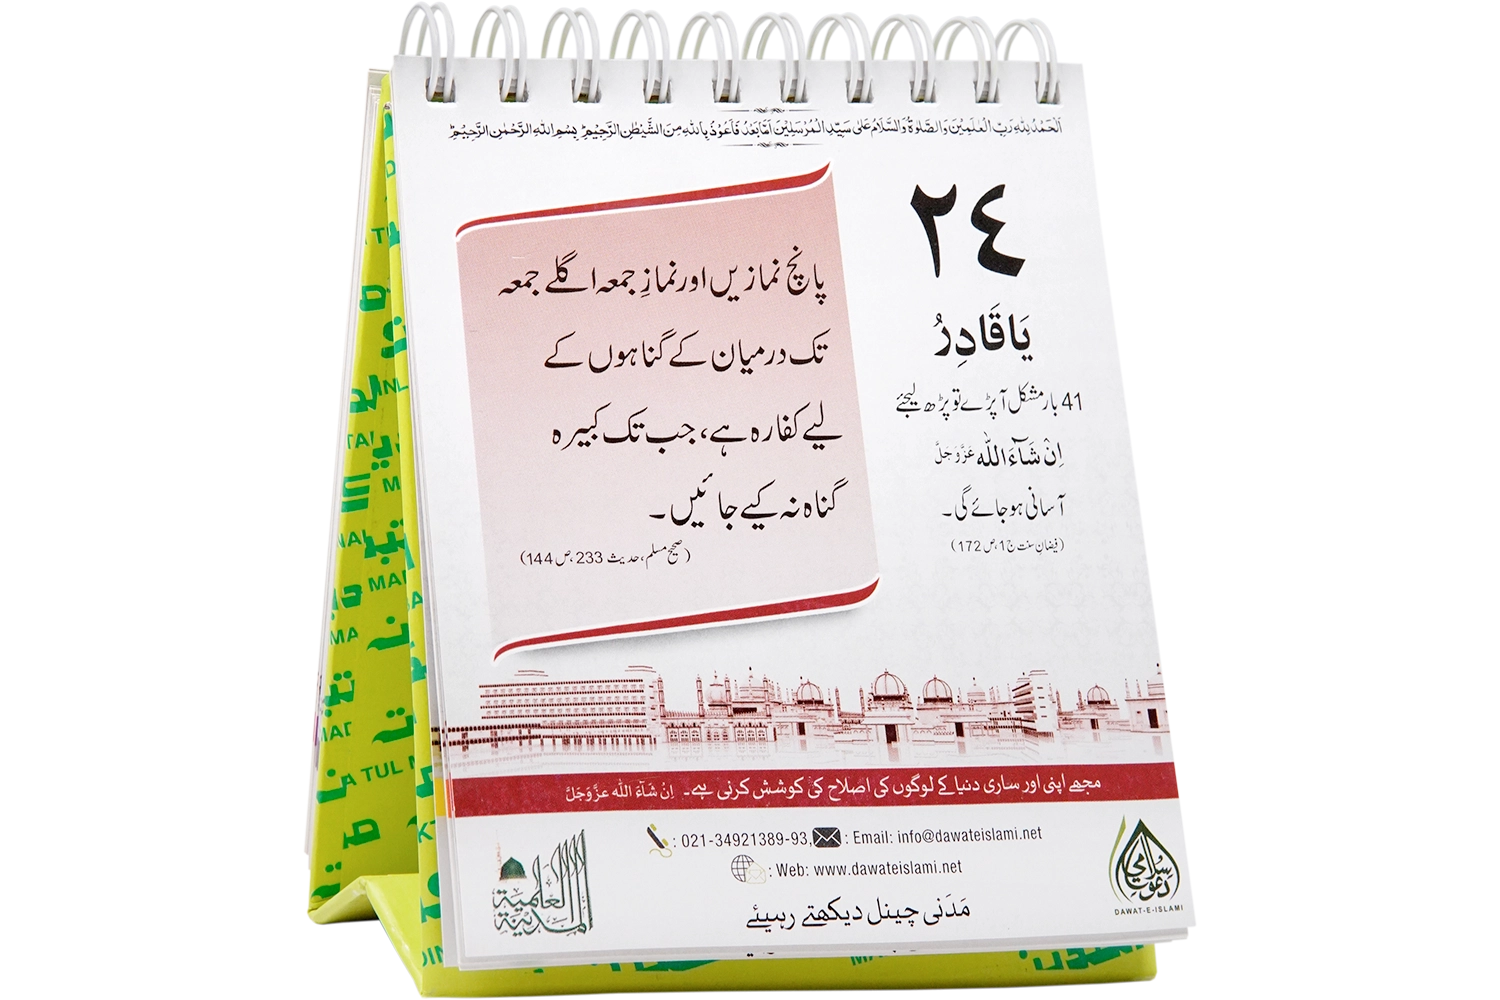 اَلْحَمْدُ لِلّٰهِ رَبِّ الْعٰلَمِیْنَ وَالصَّلٰوةُ وَالسَّلَامُ عَلٰی سَیِّدِ الْمُرْسَلِیْنَ اَمَّا بَعْدُ فَاَعُوْذُ بِاللّٰهِ مِنَ الشَّیْطٰنِ الرَّجِیْمِ ؕ بِسْمِ اللّٰهِ الرَّحْمٰنِ الرَّحِیْمِ ؕ
٢٤
یَا قَادِرُ
41 بار مشکل آپڑے تو پڑھ لیجئے
اِنْ شَآءَ اللّٰه عَزَّوَجَلَّ
آسانی ہو جائے گی۔
(فیضانِ سنت ج1، ص 172)
پانچ نمازیں اور نمازِ جمعہ اگلے جمعہ
تک درمیان کے گناہوں کے
لیے کفارہ ہے، جب تک کبیرہ
گناہ نہ کیے جائیں۔
(صحیح مسلم، حدیث 233، ص 144)
مجھے اپنی اور ساری دنیا کے لوگوں کی اصلاح کی کوشش کرنی ہے۔ اِنْ شَآءَ اللّٰه عَزَّوَجَلَّ
: 021-34921389-93, : Email: info@dawateislami.net
: Web: www.dawateislami.net
مَدَنی چینل دیکھتے رہیئے
المدینة العلمیة
دعوت اسلامی
DAWAT-E-ISLAMI